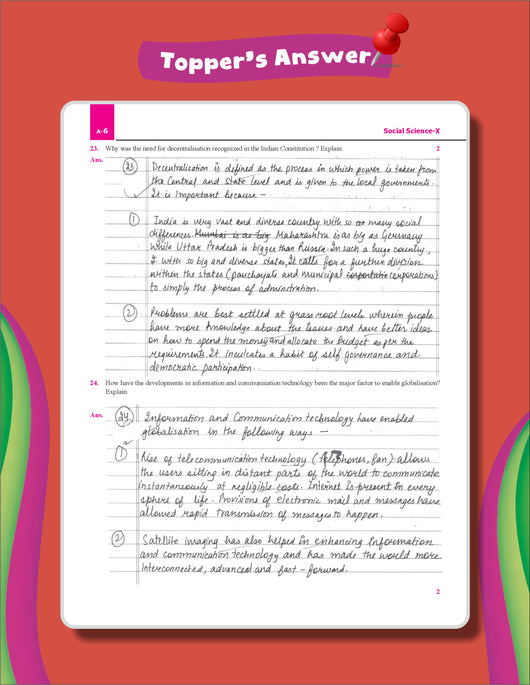 Topper's Answer
A-6
Social Science-X
23. Why was the need for decentralisation recognized in the Indian Constitution ? Explain. 2
Ans.
23 Decentralisation is defined as the process in which power is taken from
the Central and state level and is given to the local governments.
It is Important because –
1 India is very vast and diverse country with so many social
differences. Mumbai is as big Maharashtra is as big as Germany
while Uttar Pradesh is bigger than Russia. In such a huge country,
with so big and diverse states, it calls for a further division
within the states (panchayats and municipal corporations)
to simply the process of administration.
2 Problems are best settled at grass root levels wherein people
have more knowledge about the issues and have better ideas
on how to spend the money and allocate the budget as per the
requirements. It inculcates a habit of self governance and
democratic participation.
24. How have the developments in information and communication technology been the major factor to enable globalisation?
Explain.
Ans.
24 Information and Communication technology have enabled
globalisation in the following ways –
1 Rise of telecommunication technology (telephones, fax) allows
the users sitting in distant parts of the world to communicate
instantaneously at negligible costs. Internet is present in every
sphere of life. Provisions of electronic mail and messages have
allowed rapid transmission of messages to happen.
2 Satellite imaging has also helped in enhancing Information
and communication technology and has made the world more
interconnected, advanced and fast – forward.
2